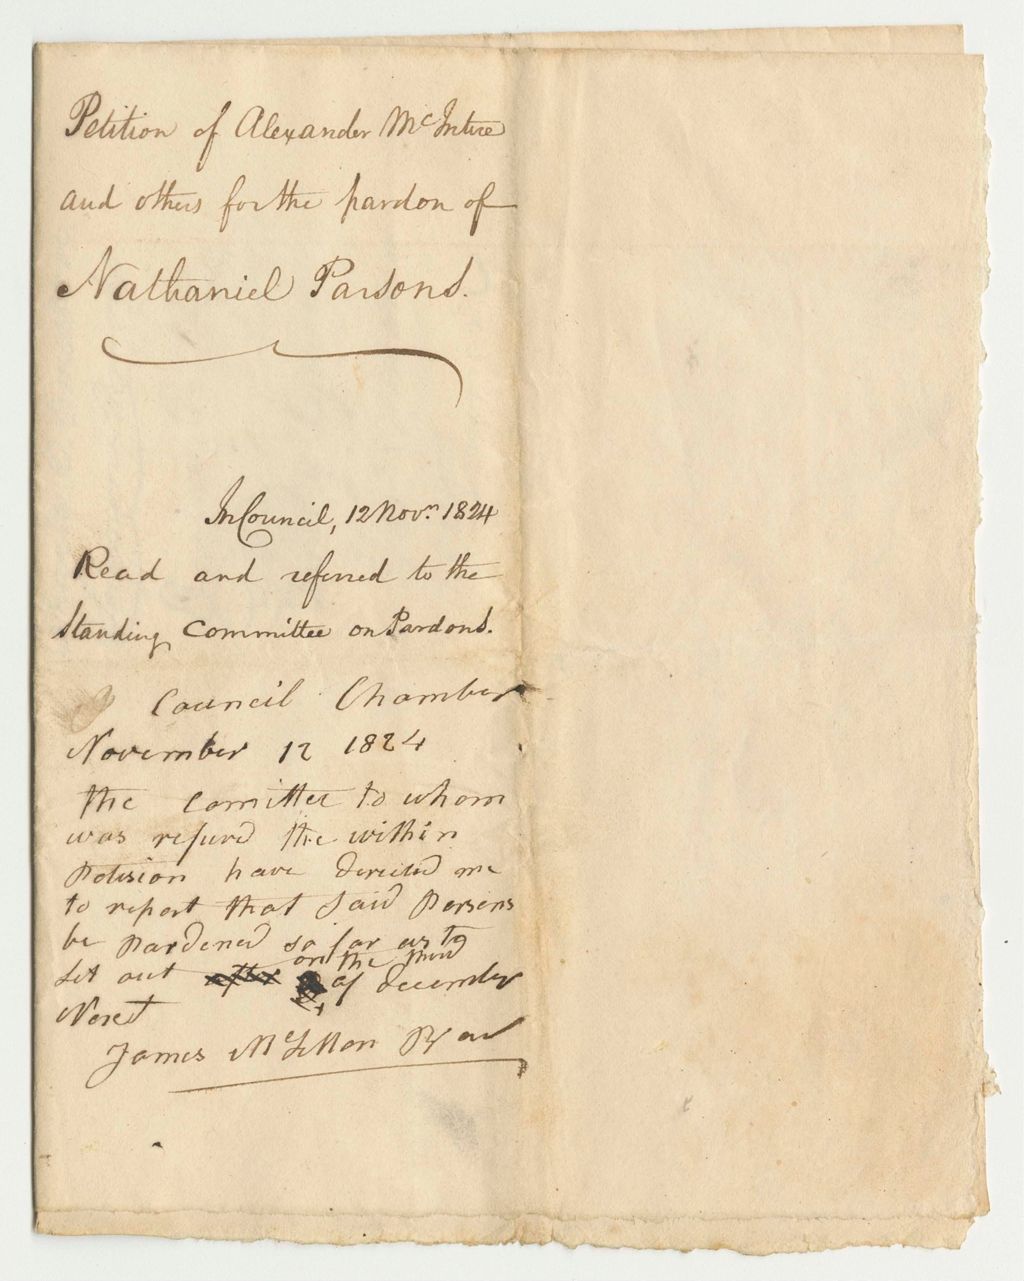 Petition of Alexander McIntire
and others for the pardon of
Nathaniel Parsons.
In Council, 12 Novr. 1824
Read and referred to the
Standing Committee on Pardons.
Council Chamber
November 12 1824
the Comittee to whom
was refured the within
Petision have derected me
to report that Said Persons
be Pardened so far as to
Let out after on the third
of december
Next
James McLellan